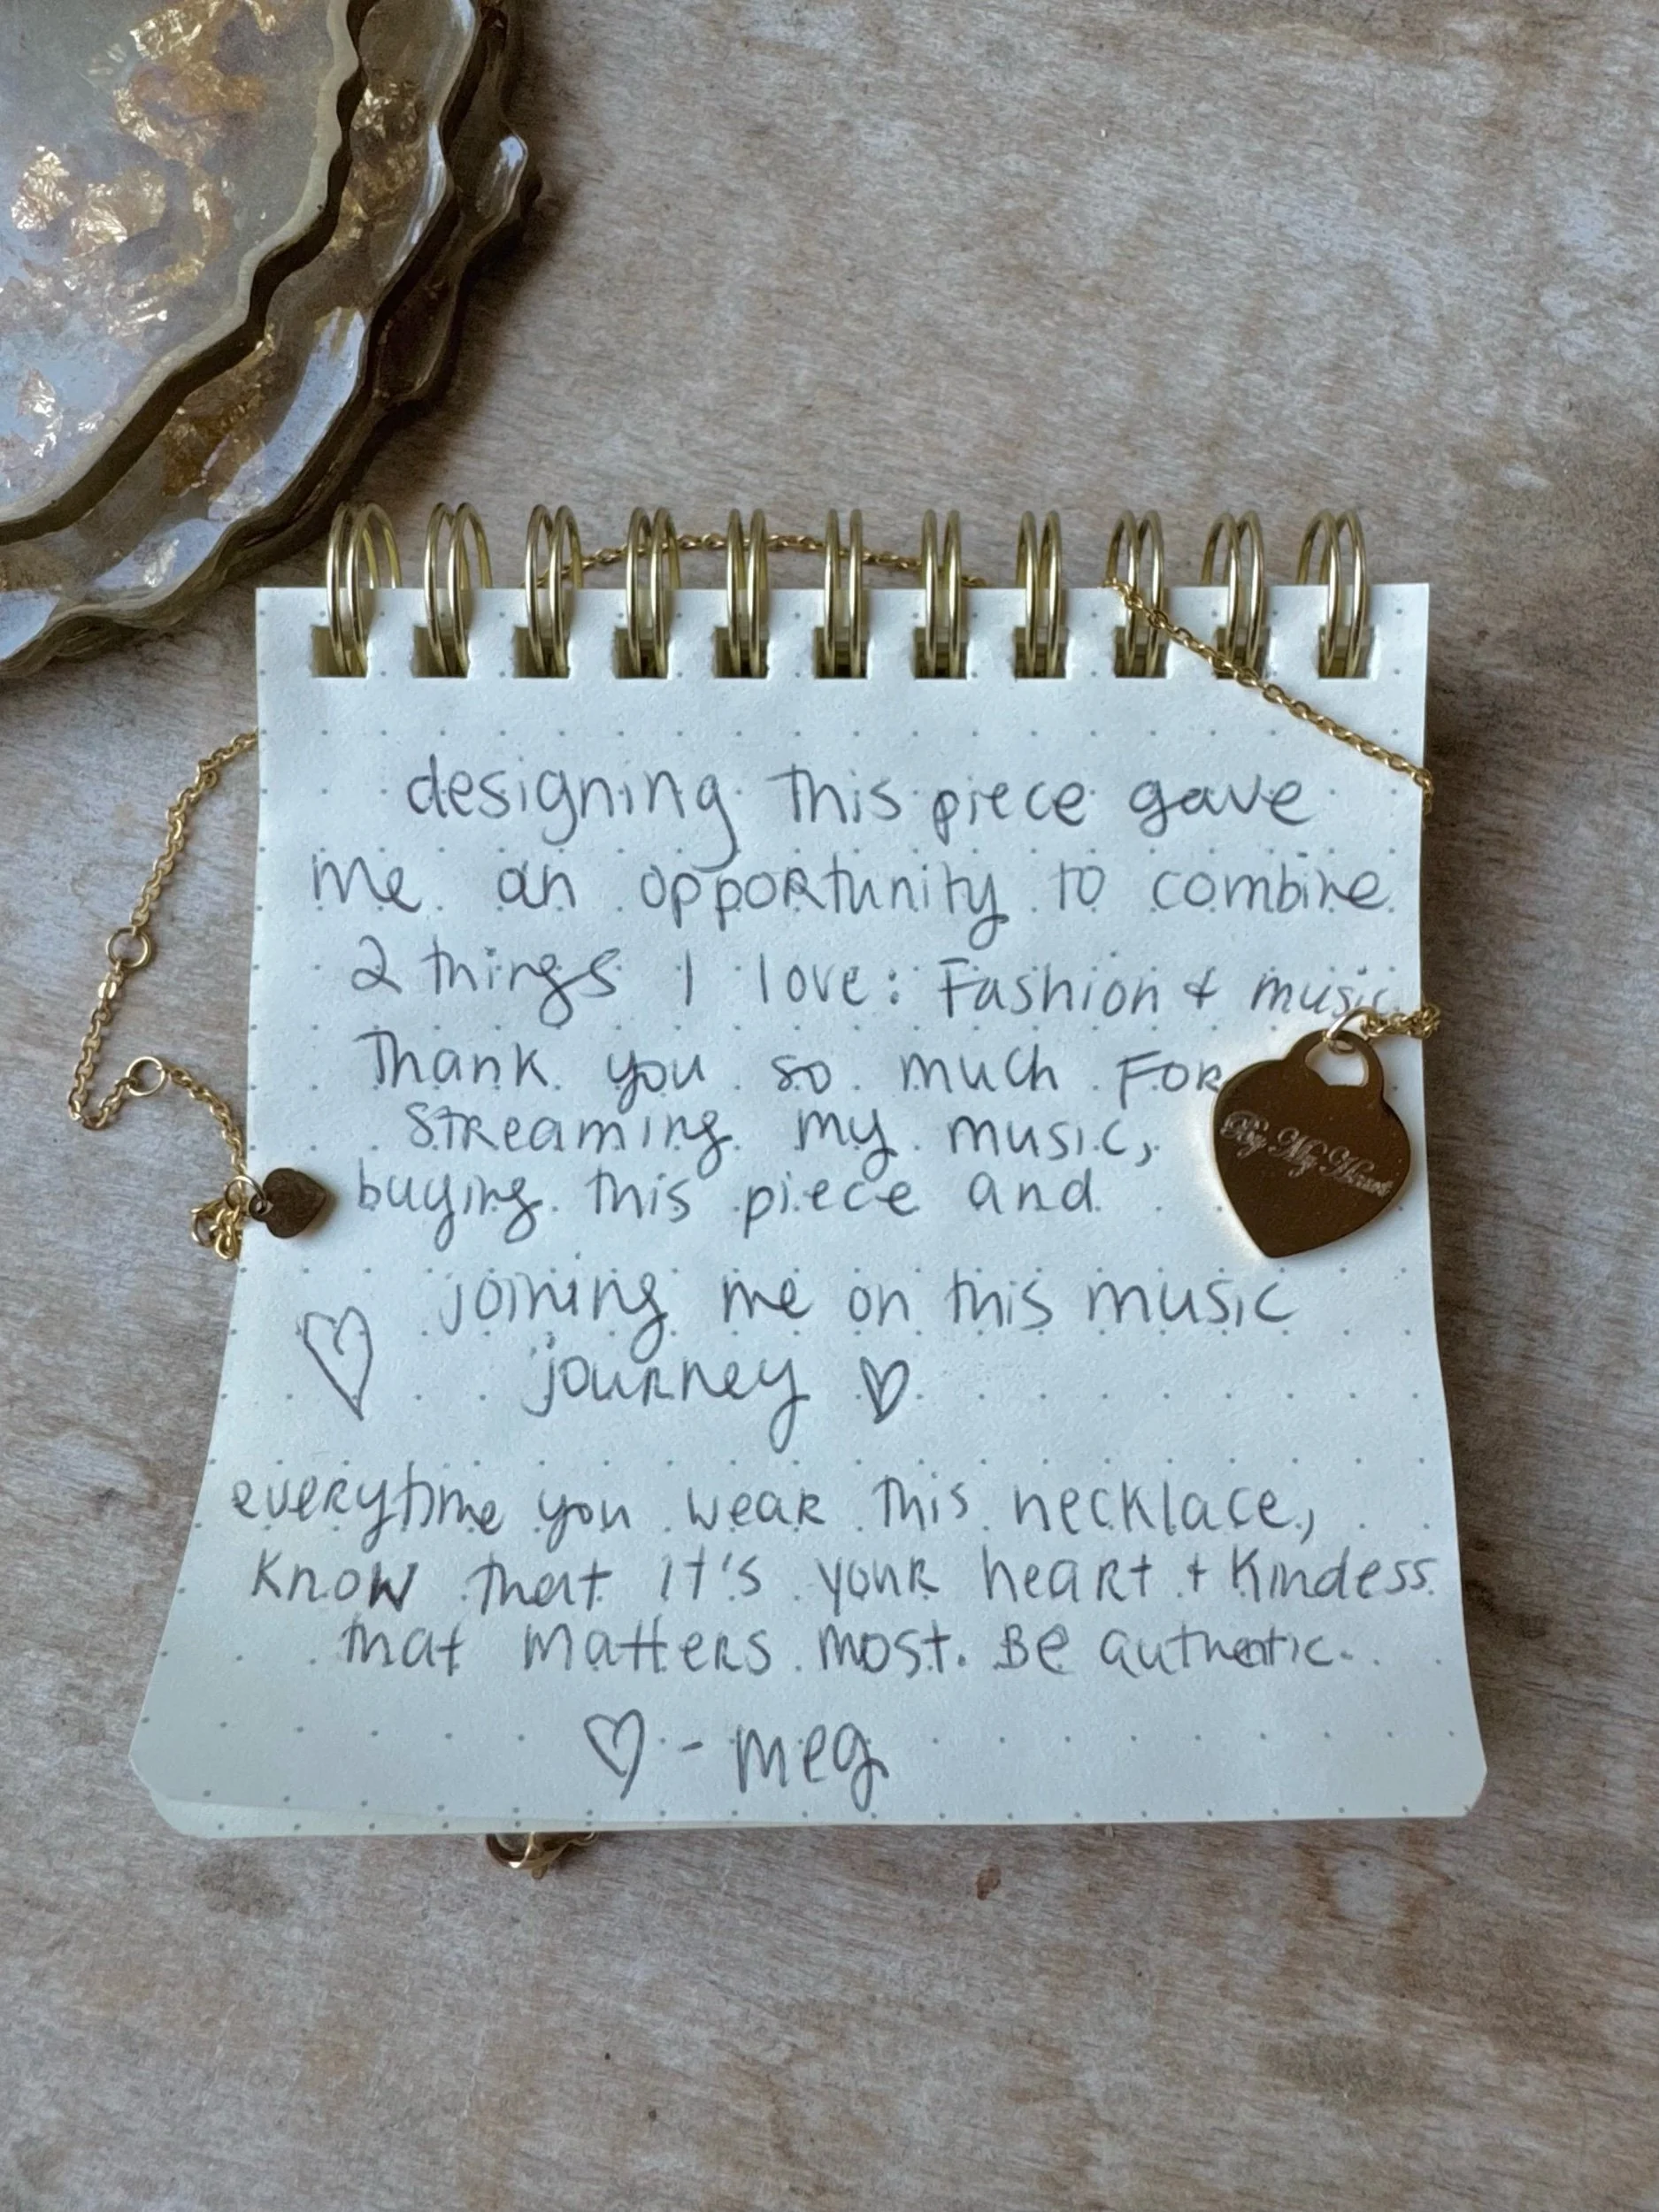 designing this piece gave
me an opportunity to combine
2 things I love: Fashion & music.
Thank you so much for
streaming my music,
buying this piece and
joining me on this music
journey ♡
everytime you wear this necklace,
know that it's your heart + kindess
that matters most. Be authentic.
♡ - meg
By My Heart